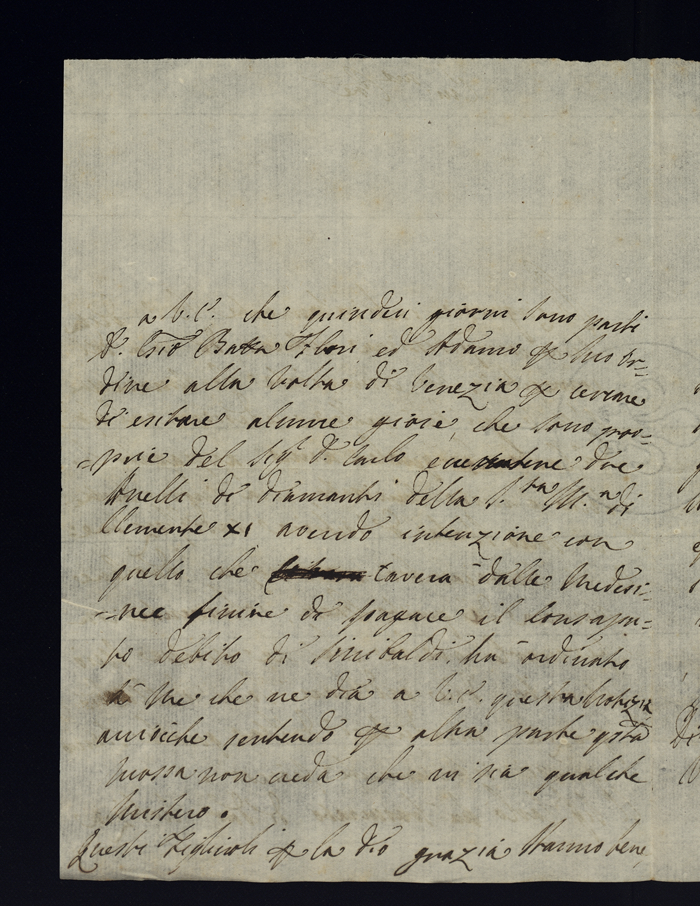 a V. E. che quindeci giorni sono partì
D. Gio Batta Flori ed Adamo per suo or=
dine alla volta di Venezia per cercare
di esitare alcune gioie, che sono pro=
=prie del Sigr D. Carlo, due
Anelli di diamanti della S.ta M.a di
Clemente XI avendo intenzione con
quello che caverà dalle medesi=
=me finire di pagare il consapu=
to debito di Sinibaldi, ha ordinato
à me che ne dia a V. E. questa notizia
acciòche sentendo per altra parte qsta
mossa non creda che vi sia qualche
mistero.
Questi Figlioli per la Dio grazia stanno bene,